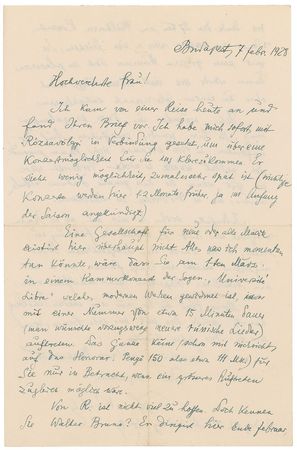 Budapest, 7 febr. 1928
Hochverehrte Frau!
Ich kam von einer Reise heute an und
fand Ihren Brief vor. Ich habe mich sofort mit
Rózsavölgyi in Verbindung gesetzt, um über eine
Konzertmöglichkeit für Sie ins Klare zu kommen. Er
sieht wenig Möglichkeit, zumal es sehr spät ist (wichtige
Konzerte werden hier 1-2 Monate früher, ja im Anfang
der Saison angekündigt)
Eine Gesellschaft für neue oder alte Musik
existiert hier überhaupt nicht. Alles was ich momentan
tun könnte, wäre, dass Sie am 1ten März
in einem Kammerkonzert der sogen. „Université
Libre" welches modernen Werken gewidmet ist,
mit einer Nummer von etwa 15 Minuten Dauer
(man wünschte vorzugsweise neuere russische Lieder)
auftreten. Das Ganze käme (schon mit Rücksicht
auf das Honorar: Pengő 150 also etwa 111 Mk.) für
Sie nur in Betracht, wenn ein größeres Auftreten
zugleich möglich wäre.
Von R. ist nicht viel zu hoffen. Doch kennen
Sie Walter Bruno? Er dirigiert hier Ende februar